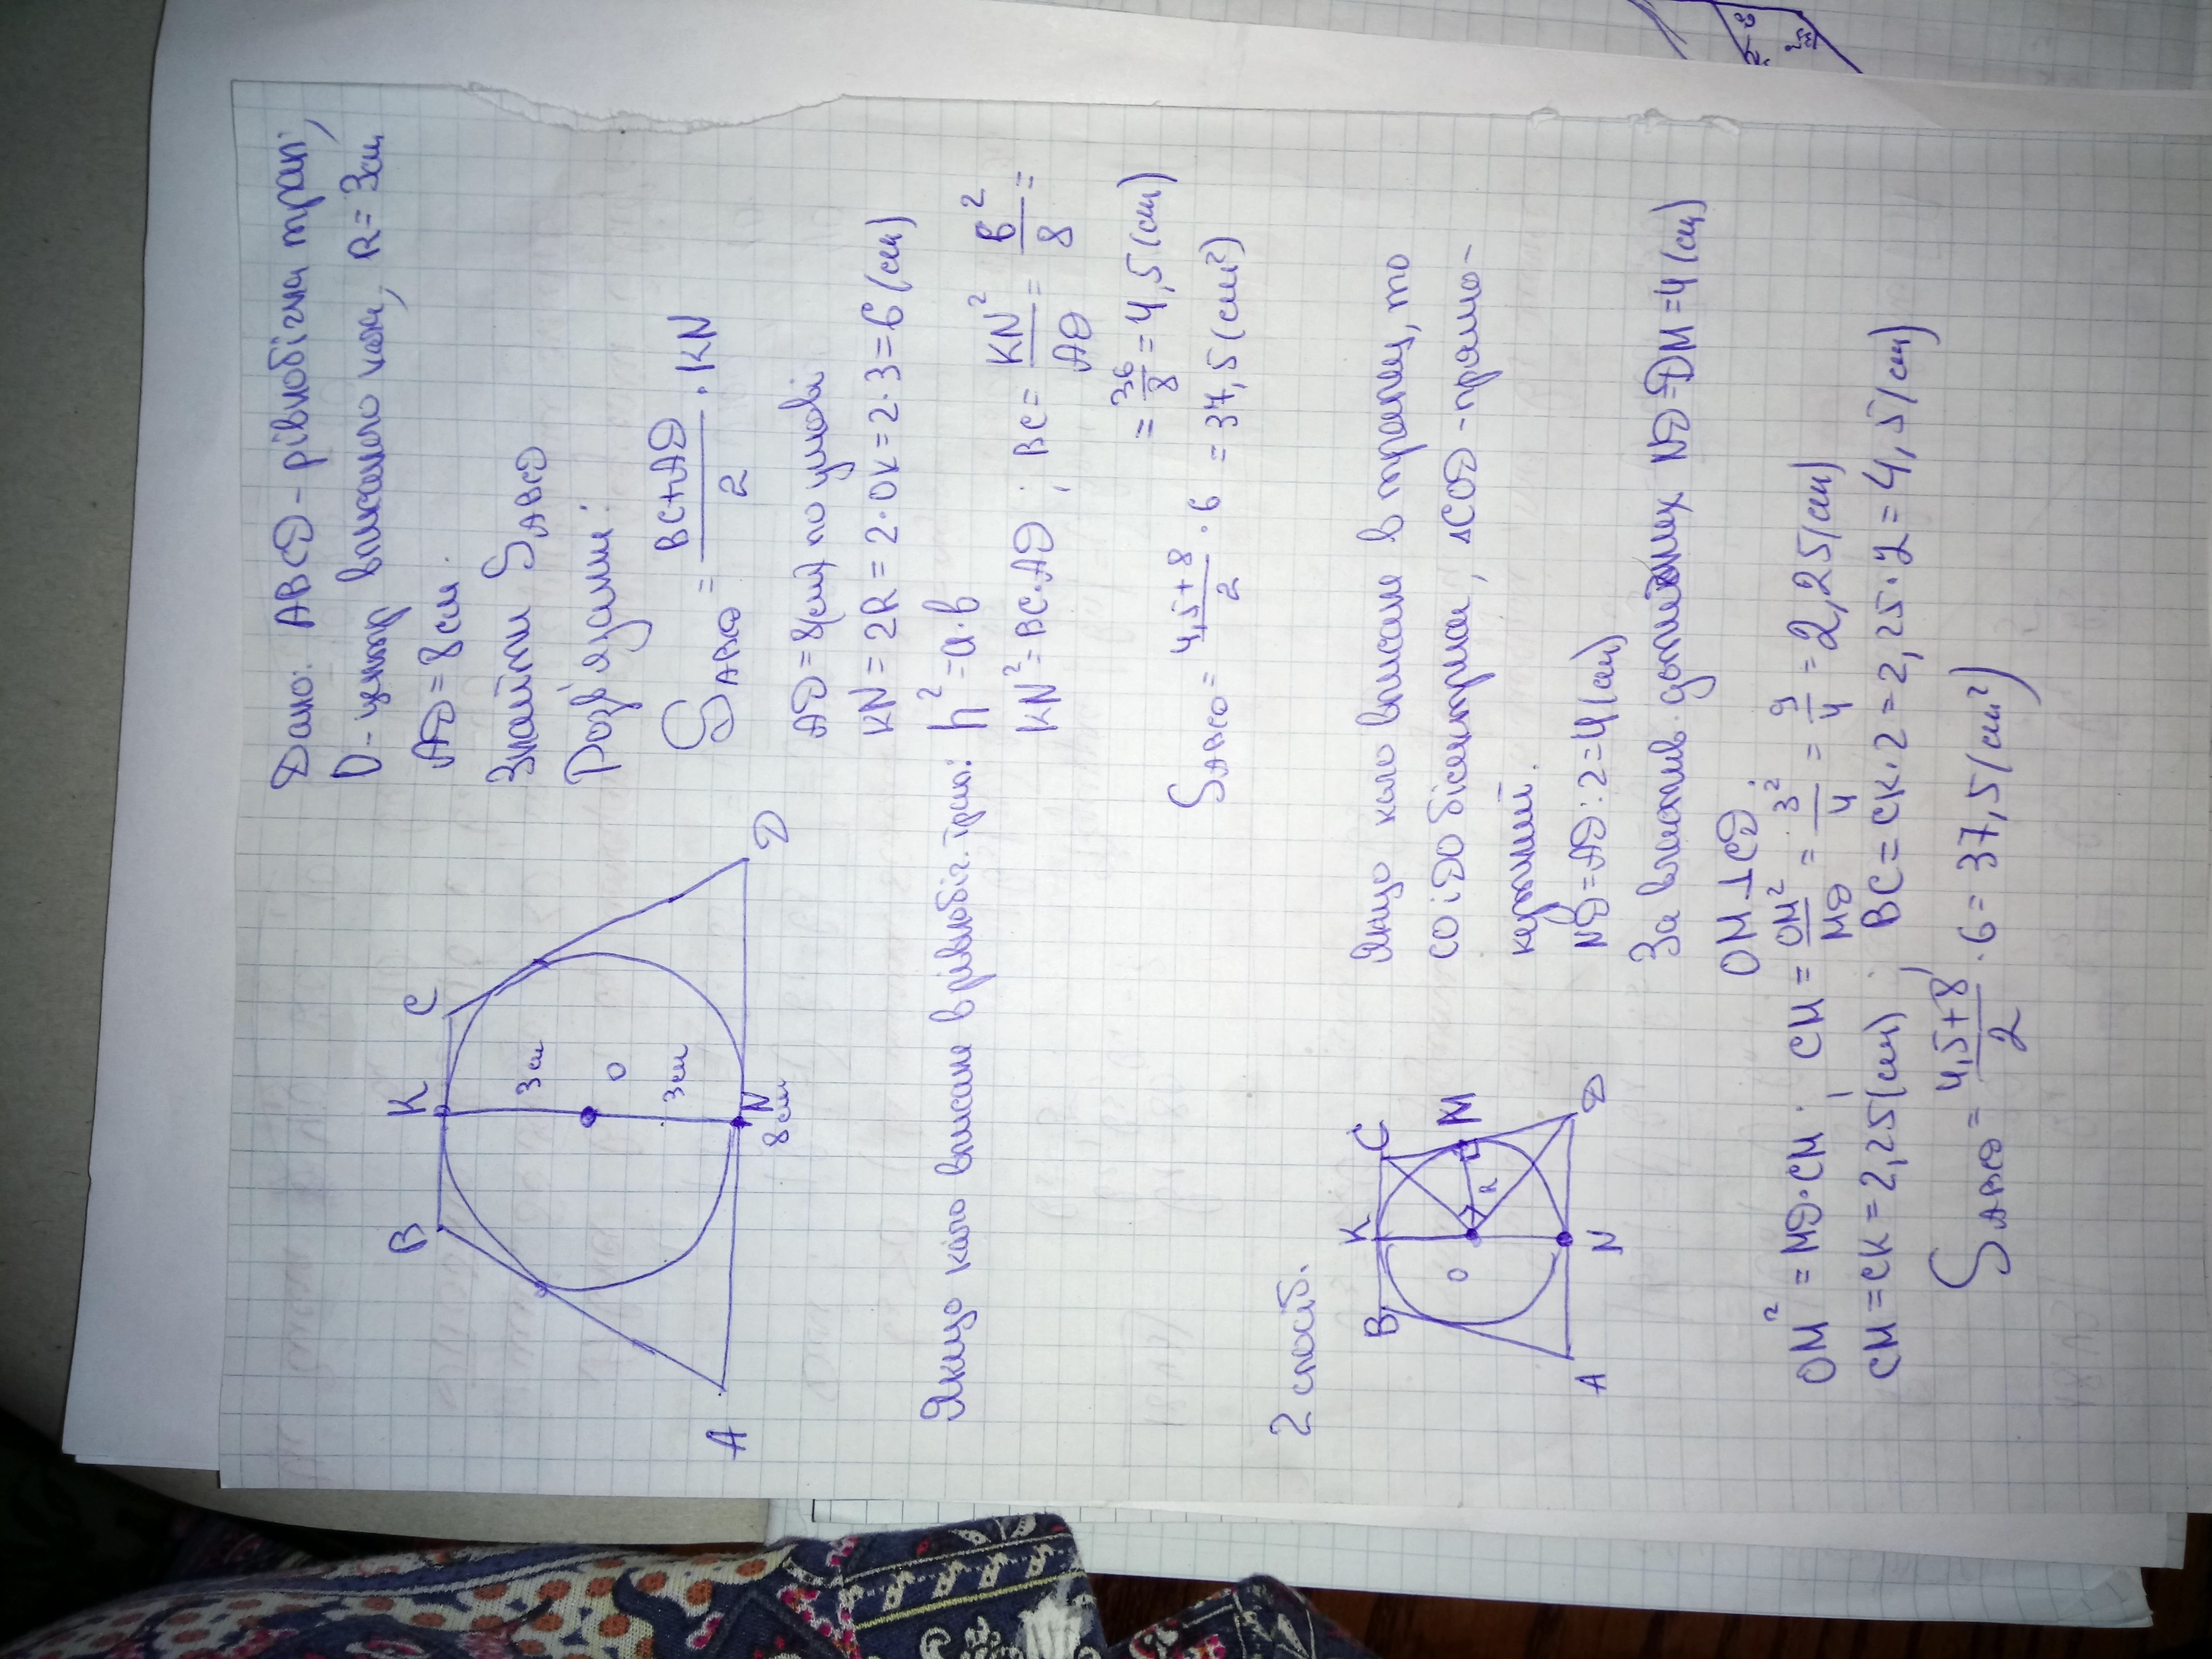 Дано: ABCD - рівнобічна трап.,
O - центр вписаного кола, R = 3см
AD = 8см.
Знайти S ABCD
Розв'язання:
S ABCD = (BC+AD)/2 · KN
AD = 8(см) по умові
KN = 2R = 2·OK = 2·3 = 6(см)
B K C
3 см
O
3 см
A N D
8 см
Якщо коло вписане в рівнобіг. трап: h² = a·b
KN² = BC·AD ; BC = KN²/AD = 6²/8 =
= 36/8 = 4,5(см)
S ABCD = (4,5+8)/2 · 6 = 37,5(см²)
2 спосіб.
B K C
O R M
A N D
Якщо коло вписане в трапец, то
CO і DO бісектриси, ΔCOD - прямо-
кутний.
ND = AD : 2 = 4(см)
За властив. дотичних ND = DM = 4(см)
OM ⊥ CD.
OM² = MD·CM ; CM = OM²/MD = 3²/4 = 9/4 = 2,25(см)
CM = CK = 2,25(см) ; BC = CK·2 = 2,25·2 = 4,5(см)
S ABCD = (4,5+8)/2 · 6 = 37,5(см²)